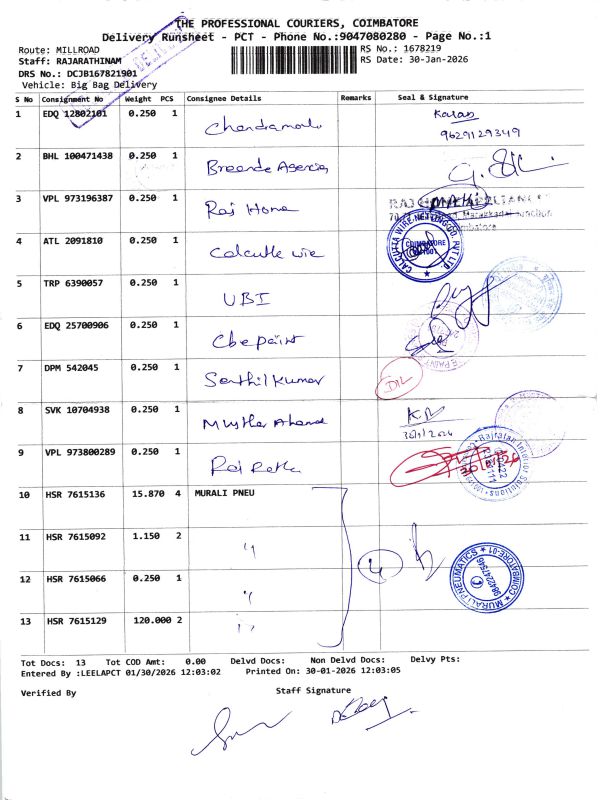 THE PROFESSIONAL COURIERS, COIMBATORE
Delivery Runsheet - PCT - Phone No.:9047080280 - Page No.:1
Route: MILLROAD
RS No.: 1678219
Staff: RAJARATHINAM
RS Date: 30-Jan-2026
DRS No.: DCJB167821901
Vehicle: Big Bag Delivery
S No Consignment No Weight PCS Consignee Details Remarks Seal & Signature
1 EDQ 12802101 0.250 1 Karan
9629129349
2 BHL 100471438 0.250 1
3 VPL 973196387 1 0.250 Raj Home
4 ATL 2091810 0.250 1 Calcutta wire
CALCUTTA WIRE NETTING CO. PVT LTD.
COIMBATORE
5 TRP 6390057 0.250 1 UBI
6 EDQ 25700906 0.250 1 Cbe paint
7 DPM 542045 0.250 1 Senthil Kumar DIL
8 SVK 10704938 0.250 1 K.R
30/1/2026
9 VPL 973800289 0.250 1
Rajratan Interior Solutions
10 HSR 7615136 15.870 4 MURALI PNEU
11 HSR 7615092 1.150 2 "
12 HSR 7615066 0.250 1 "
13 HSR 7615129 120.000 2 "
4
MURALI PNEUMATICS
COIMBATORE-01
9842247546
Tot Docs: 13 Tot COD Amt: 0.00 Delvd Docs: Non Delvd Docs: Delvy Pts:
Entered By :LEELAPCT 01/30/2026 12:03:02 Printed On: 30-01-2026 12:03:05
Verified By Staff Signature